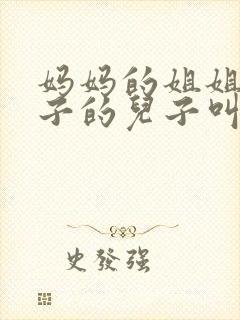 妈妈的姐姐
子的兒子叫
史發强